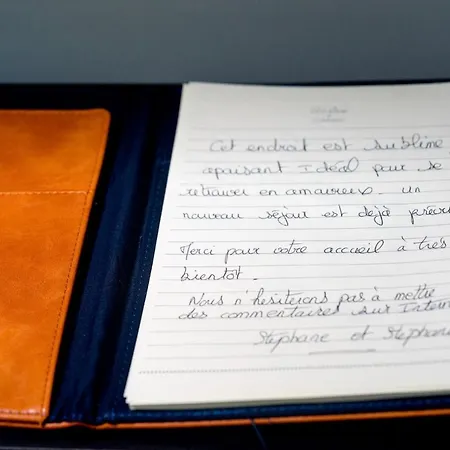 Cet endroit est sublime
apaisant Idéal pour se
retrouver en amoureux. un
nouveau séjour est déjà prévu
Merci pour votre accueil à très
bientôt.
Nous n'hésiterons pas à mettre
des commentaires sur Intern
Stéphane et Stéphani